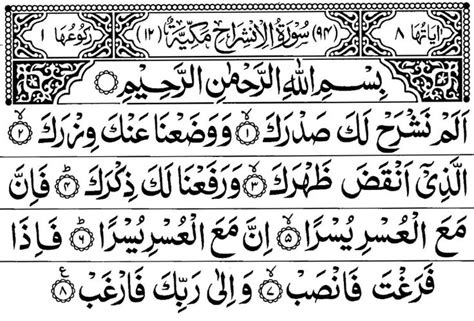 اٰیَاتُهَا ۸ (۹۴) سُوْرَةُ الْاِنْشِرَاحِ مَكِّیَّةٌ (۱۲) رُكُوْعُهَا ۱
بِسْمِ اللّٰهِ الرَّحْمٰنِ الرَّحِیْمِ
اَلَمْ نَشْرَحْ لَكَ صَدْرَكَ ۙ﴿۱﴾ وَوَضَعْنَا عَنْكَ وِزْرَكَ ۙ﴿۲﴾
الَّذِیْۤ اَنْقَضَ ظَهْرَكَ ۙ﴿۳﴾ وَرَفَعْنَا لَكَ ذِكْرَكَ ؕ﴿۴﴾ فَاِنَّ
مَعَ الْعُسْرِ یُسْرًا ۙ﴿۵﴾ اِنَّ مَعَ الْعُسْرِ یُسْرًا ؕ﴿۶﴾ فَاِذَا
فَرَغْتَ فَانْصَبْ ۙ﴿۷﴾ وَاِلٰی رَبِّكَ فَارْغَبْ ﴿۸﴾ ع